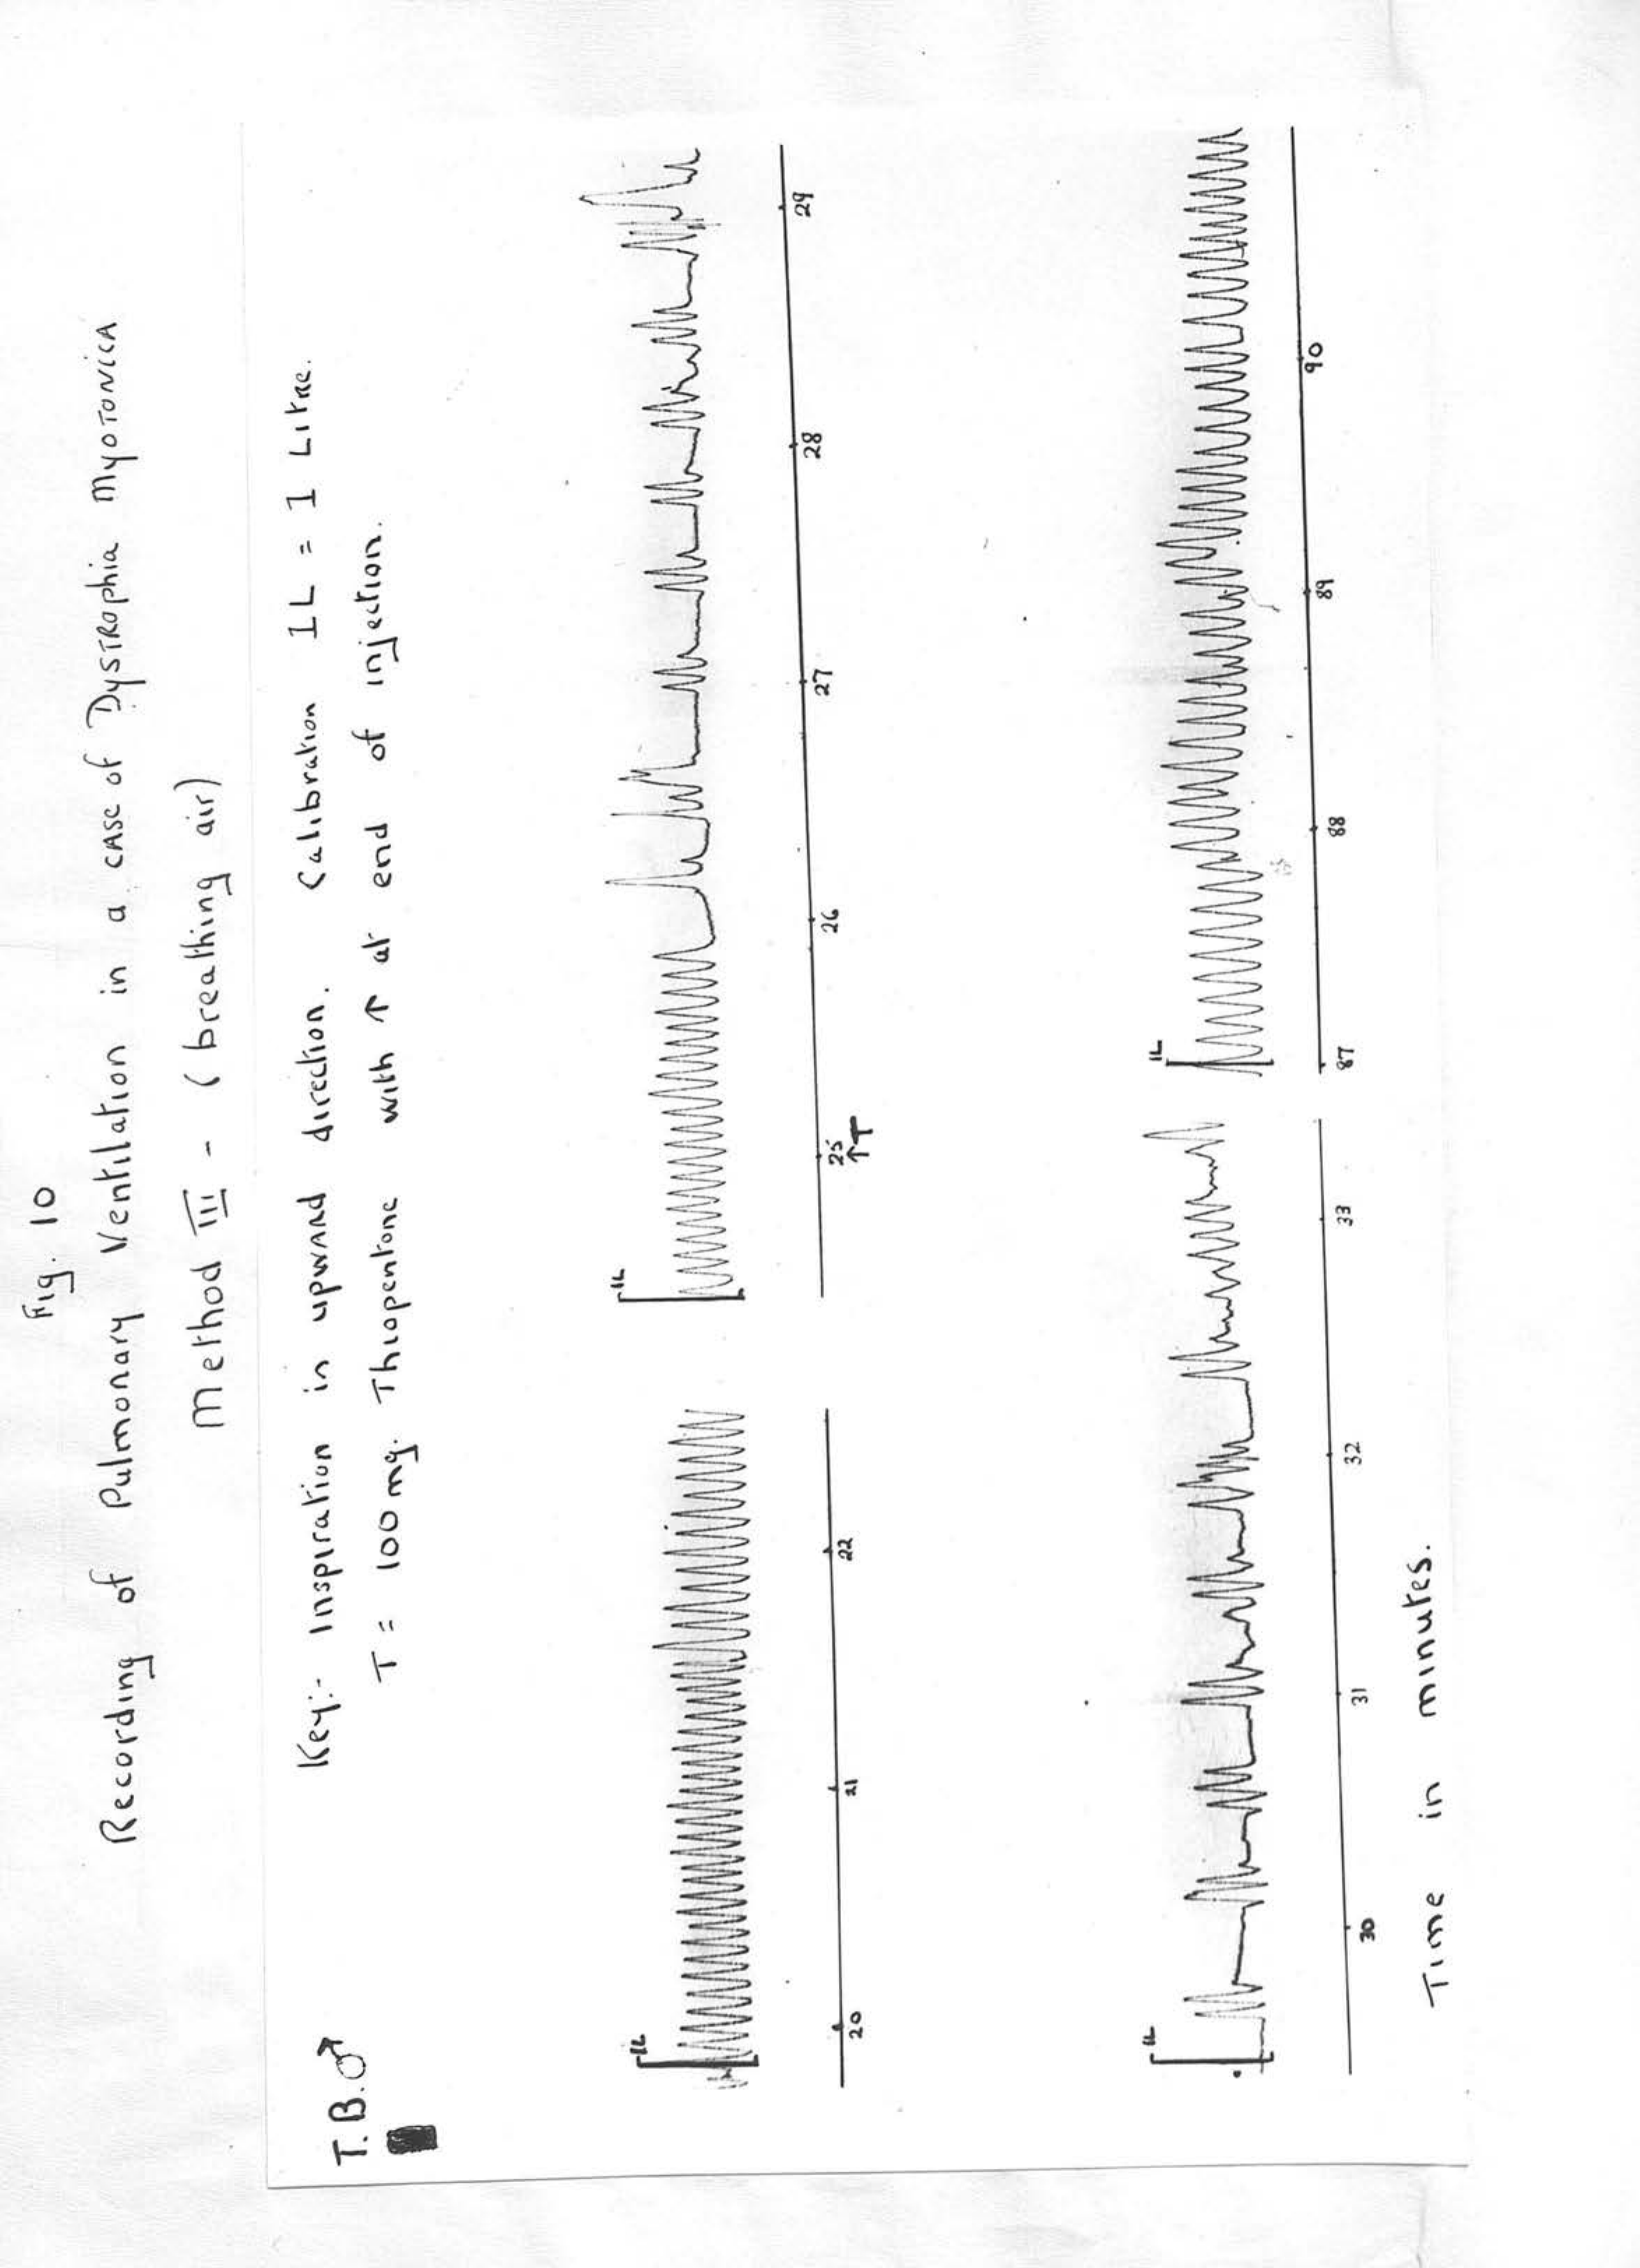 Fig. 10
Recording of Pulmonary Ventilation in a CASE of DYSTROPHIA MYOTONICA
Method III - (breathing air)
Key:- Inspiration in upward direction. Calibration 1L = 1 Litre.
T = 100 mg. Thiopentone with ↑ at end of injection.
T.B.♂
1L
20 21 22
1L
25 26 27 28 29
↑T
1L
30 31 32 33
1L
87 88 89 90
Time in minutes.